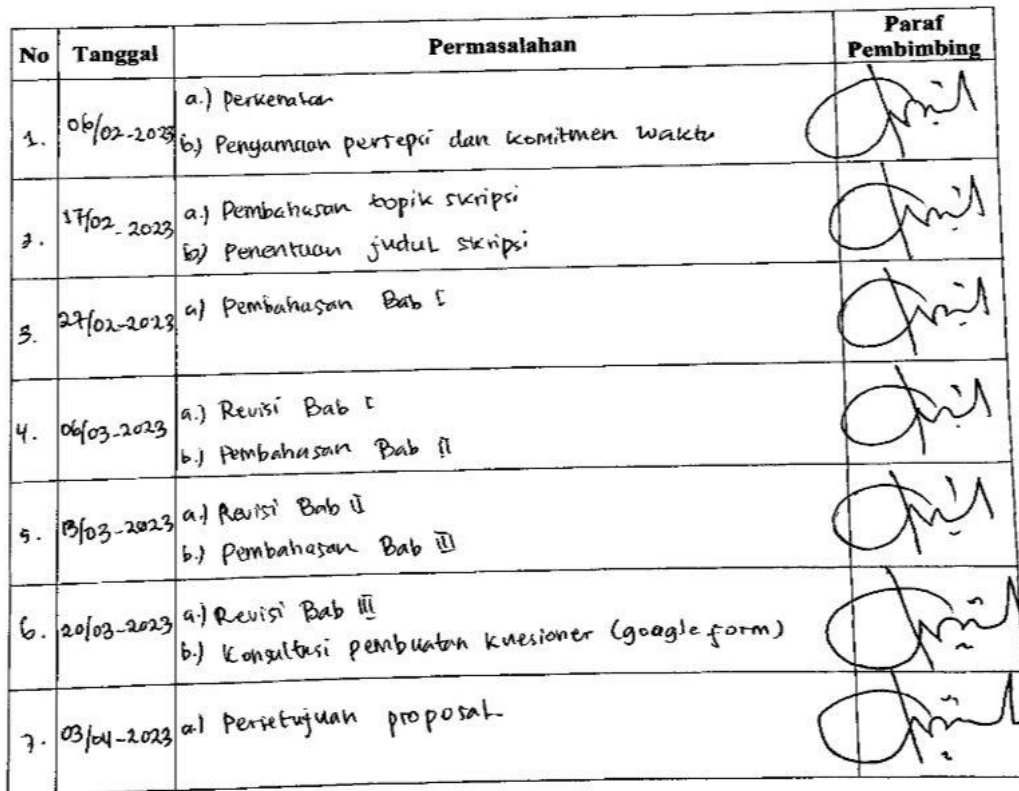 No Tanggal Permasalahan Paraf Pembimbing
1. 06/02-2023 a.) Perkenalan
b.) Penyamaan persepsi dan komitmen waktu
2. 17/02-2023 a.) Pembahasan topik skripsi
b.) Penentuan judul skripsi
3. 27/02-2023 a) Pembahasan Bab I
4. 06/03-2023 a.) Revisi Bab I
b.) Pembahasan Bab II
5. 13/03-2023 a.) Revisi Bab II
b.) Pembahasan Bab III
6. 20/03-2023 a.) Revisi Bab III
b.) Konsultasi pembuatan kuesioner (google form)
7. 03/04-2023 a.) Persetujuan proposal